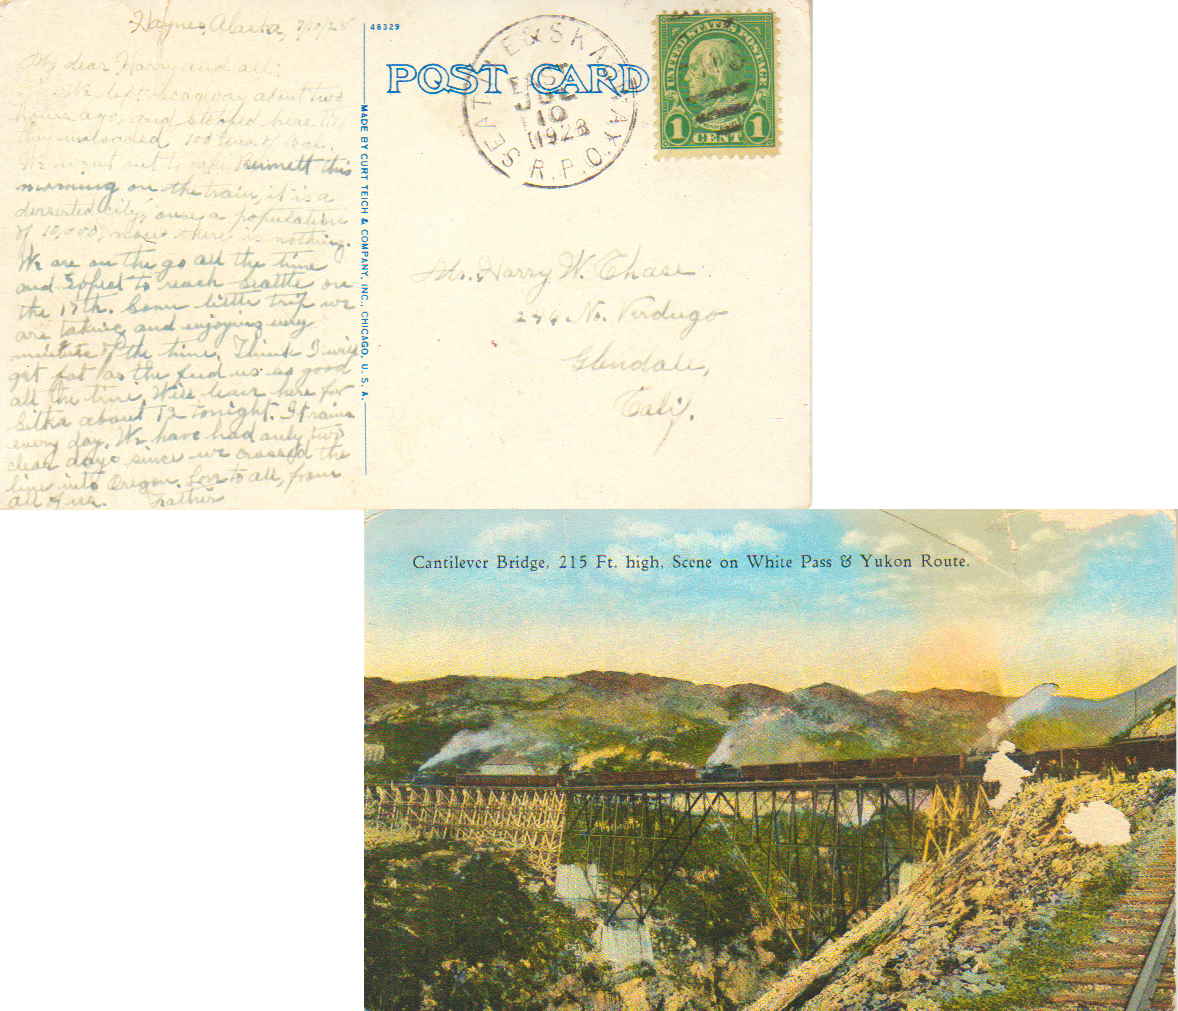 Haynes, Alaska, 7/10/28
My dear Harry and all:
We left Scagway about two
hours ago, and stoped here to
unloaded 100 tons of coal.
We went out to Bennett this
morning on the train, it is a
deserted city, once a population
of 10,000, now there is nothing.
We are on the go all the time
and expect to reach Seattle on
the 17th. Some little trip we
are taking and enjoying every
minute of the time. Think I will
get fat as the feed us so good
all the time. Will leave here for
Sitka about 12 tonight. It rains
every day. We have had only two
clear days since we crossed the
line into Oregon. Love to all, from
all of us. Father
48329
POST CARD
MADE BY CURT TEICH & COMPANY, INC., CHICAGO, U. S. A.
SEATTLE & SKAGWAY
EAST
JUL
10
1928
R.P.O.
UNITED STATES POSTAGE
1 CENT 1
Mr. Harry W. Chase
No. Verdugo
Glendale,
Calif.
Cantilever Bridge, 215 Ft. high, Scene on White Pass & Yukon Route.